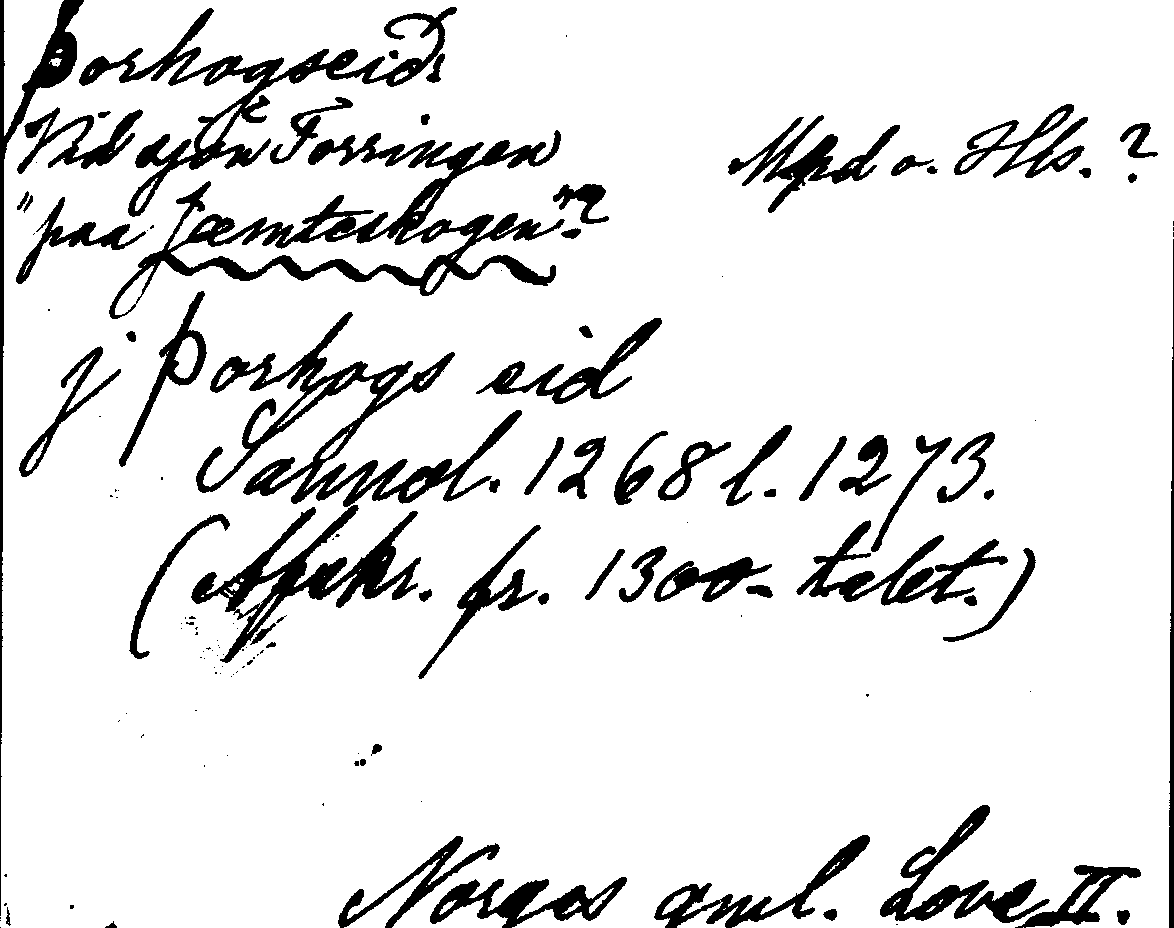 Þorhogseið
Vid sjön Torringen Mpd o. Hls. ?
"paa Jæmteskogen"?
j Þorhogs eid
Sannol. 1268 l. 1273.
(Afskr. fr. 1300-talet.)
Norges gml. Love II.